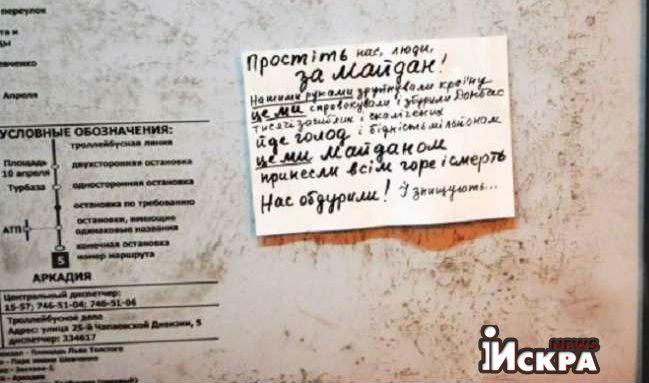 переулок
та и
Апреля
УСЛОВНЫЕ ОБОЗНАЧЕНИЯ:
троллейбусная линия
Площадь
10 апреля
двухсторонная остановка
Турбаза
односторонняя остановка
остановка по требованию
остановки, имеющие
одинаковые названия
АТП
конечная остановка
5
номер маршрута
АРКАДИЯ
Центральный диспетчер:
15-57; 746-51-04; 746-51-06
Троллейбусное депо
Адрес: улица 25-й Чапаевской Дивизии, 5
диспетчер: 334617
Площадь Льва Толстого
Парк имени Шевченко
Простіть нас, люди,
за Майдан!
Нашими руками зруйнували країну
це ми спровокували і збурили Донбас
тисячі загиблих і скалічених
йде голод і бідність мільйонам
це ми Майданом
принесли всім горе і смерть
Нас обдурили! І знищують...
ИСКРА NEWS